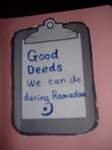 Good
Deeds
We can do
during Ramadan